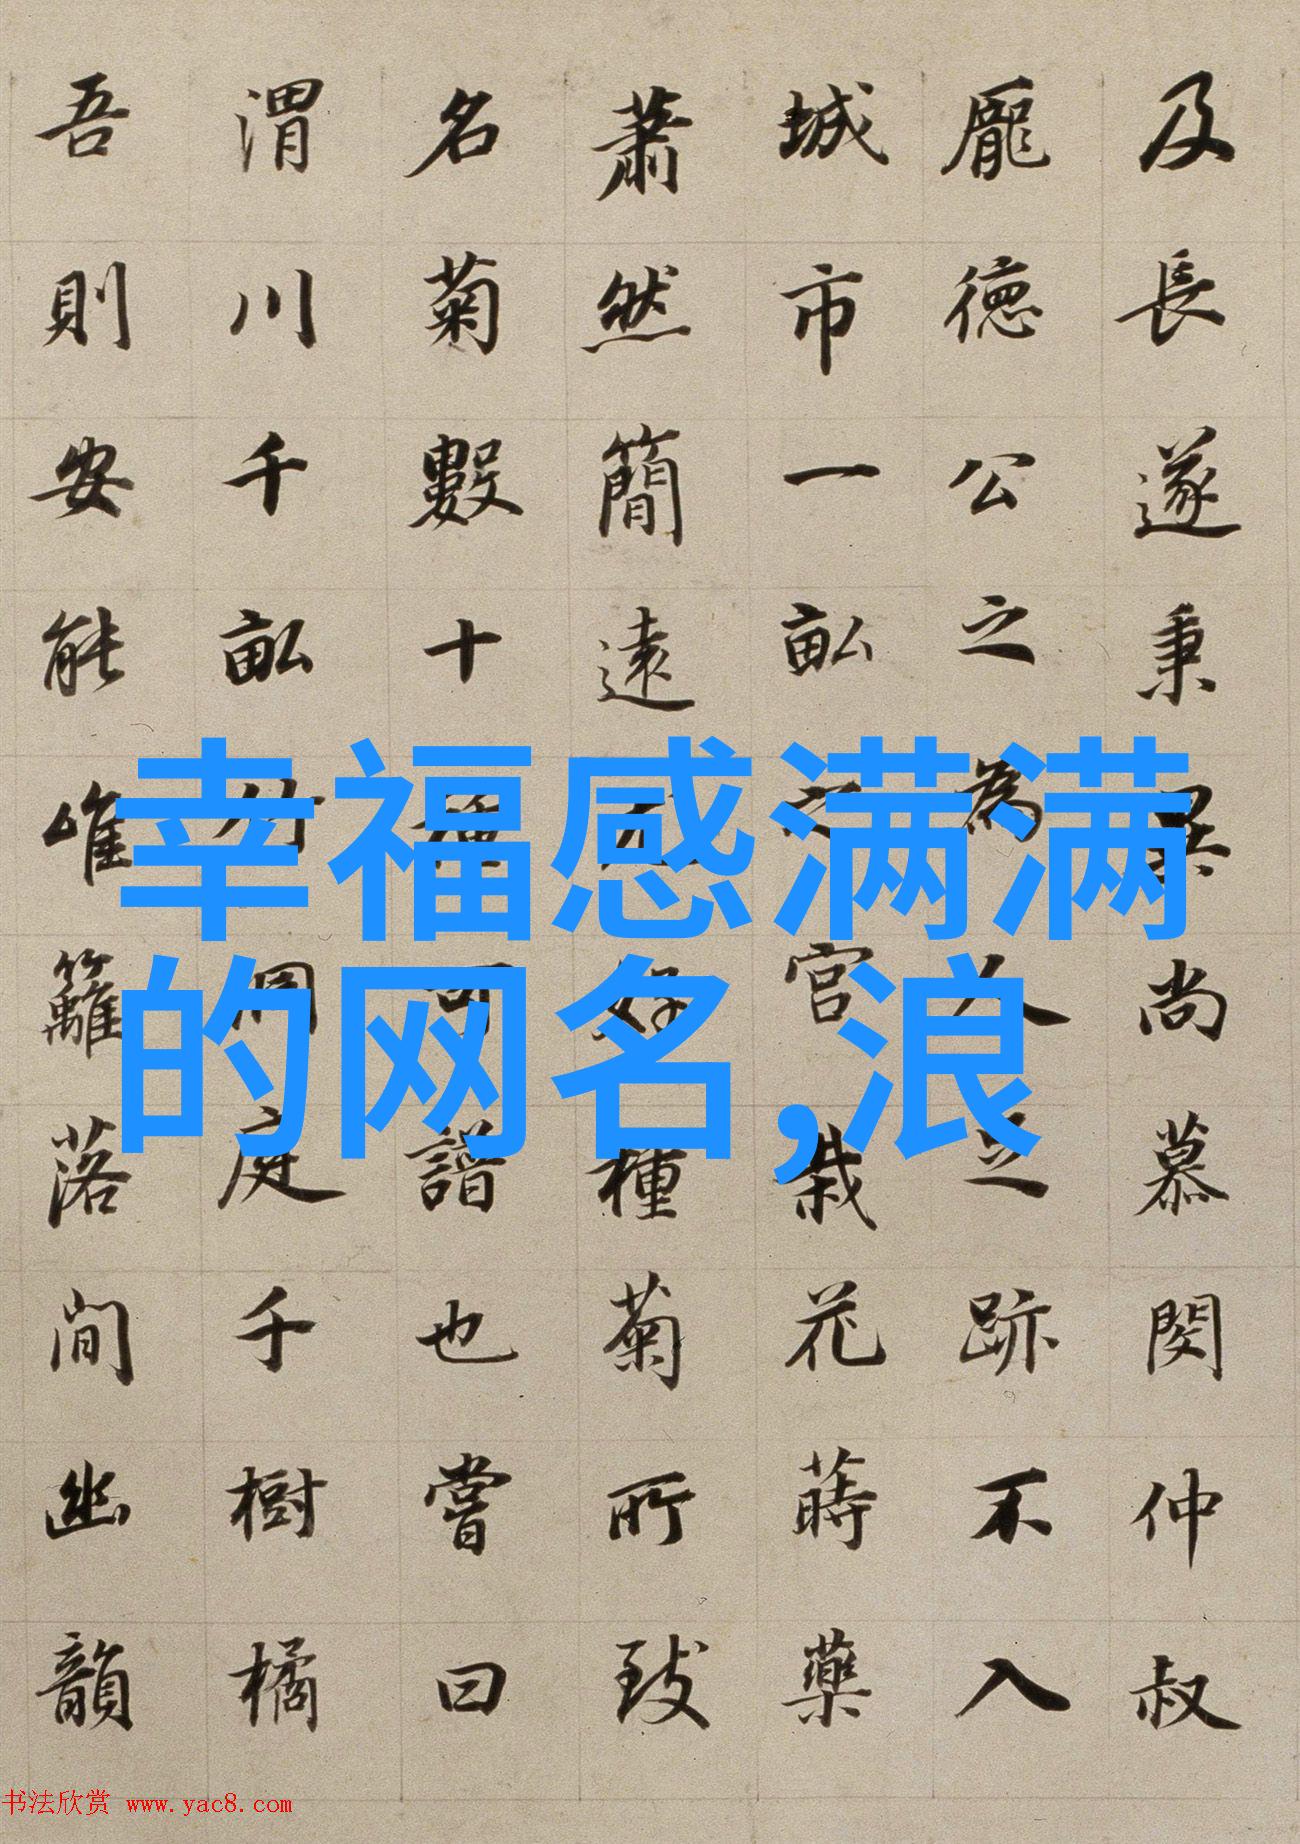 及長遂秉異尚慕閔仲叔
龐德公之為人足跡不入
城市一畝之宮栽花蒔藥
蕭然簡遠好種菊所致
名菊數十種可譜也嘗曰
渭川千畝竹洞庭千樹橘
吾則安能唯籬落間幽韻
幸福感满满
的网名,浪
书法欣赏 www.yac8.com